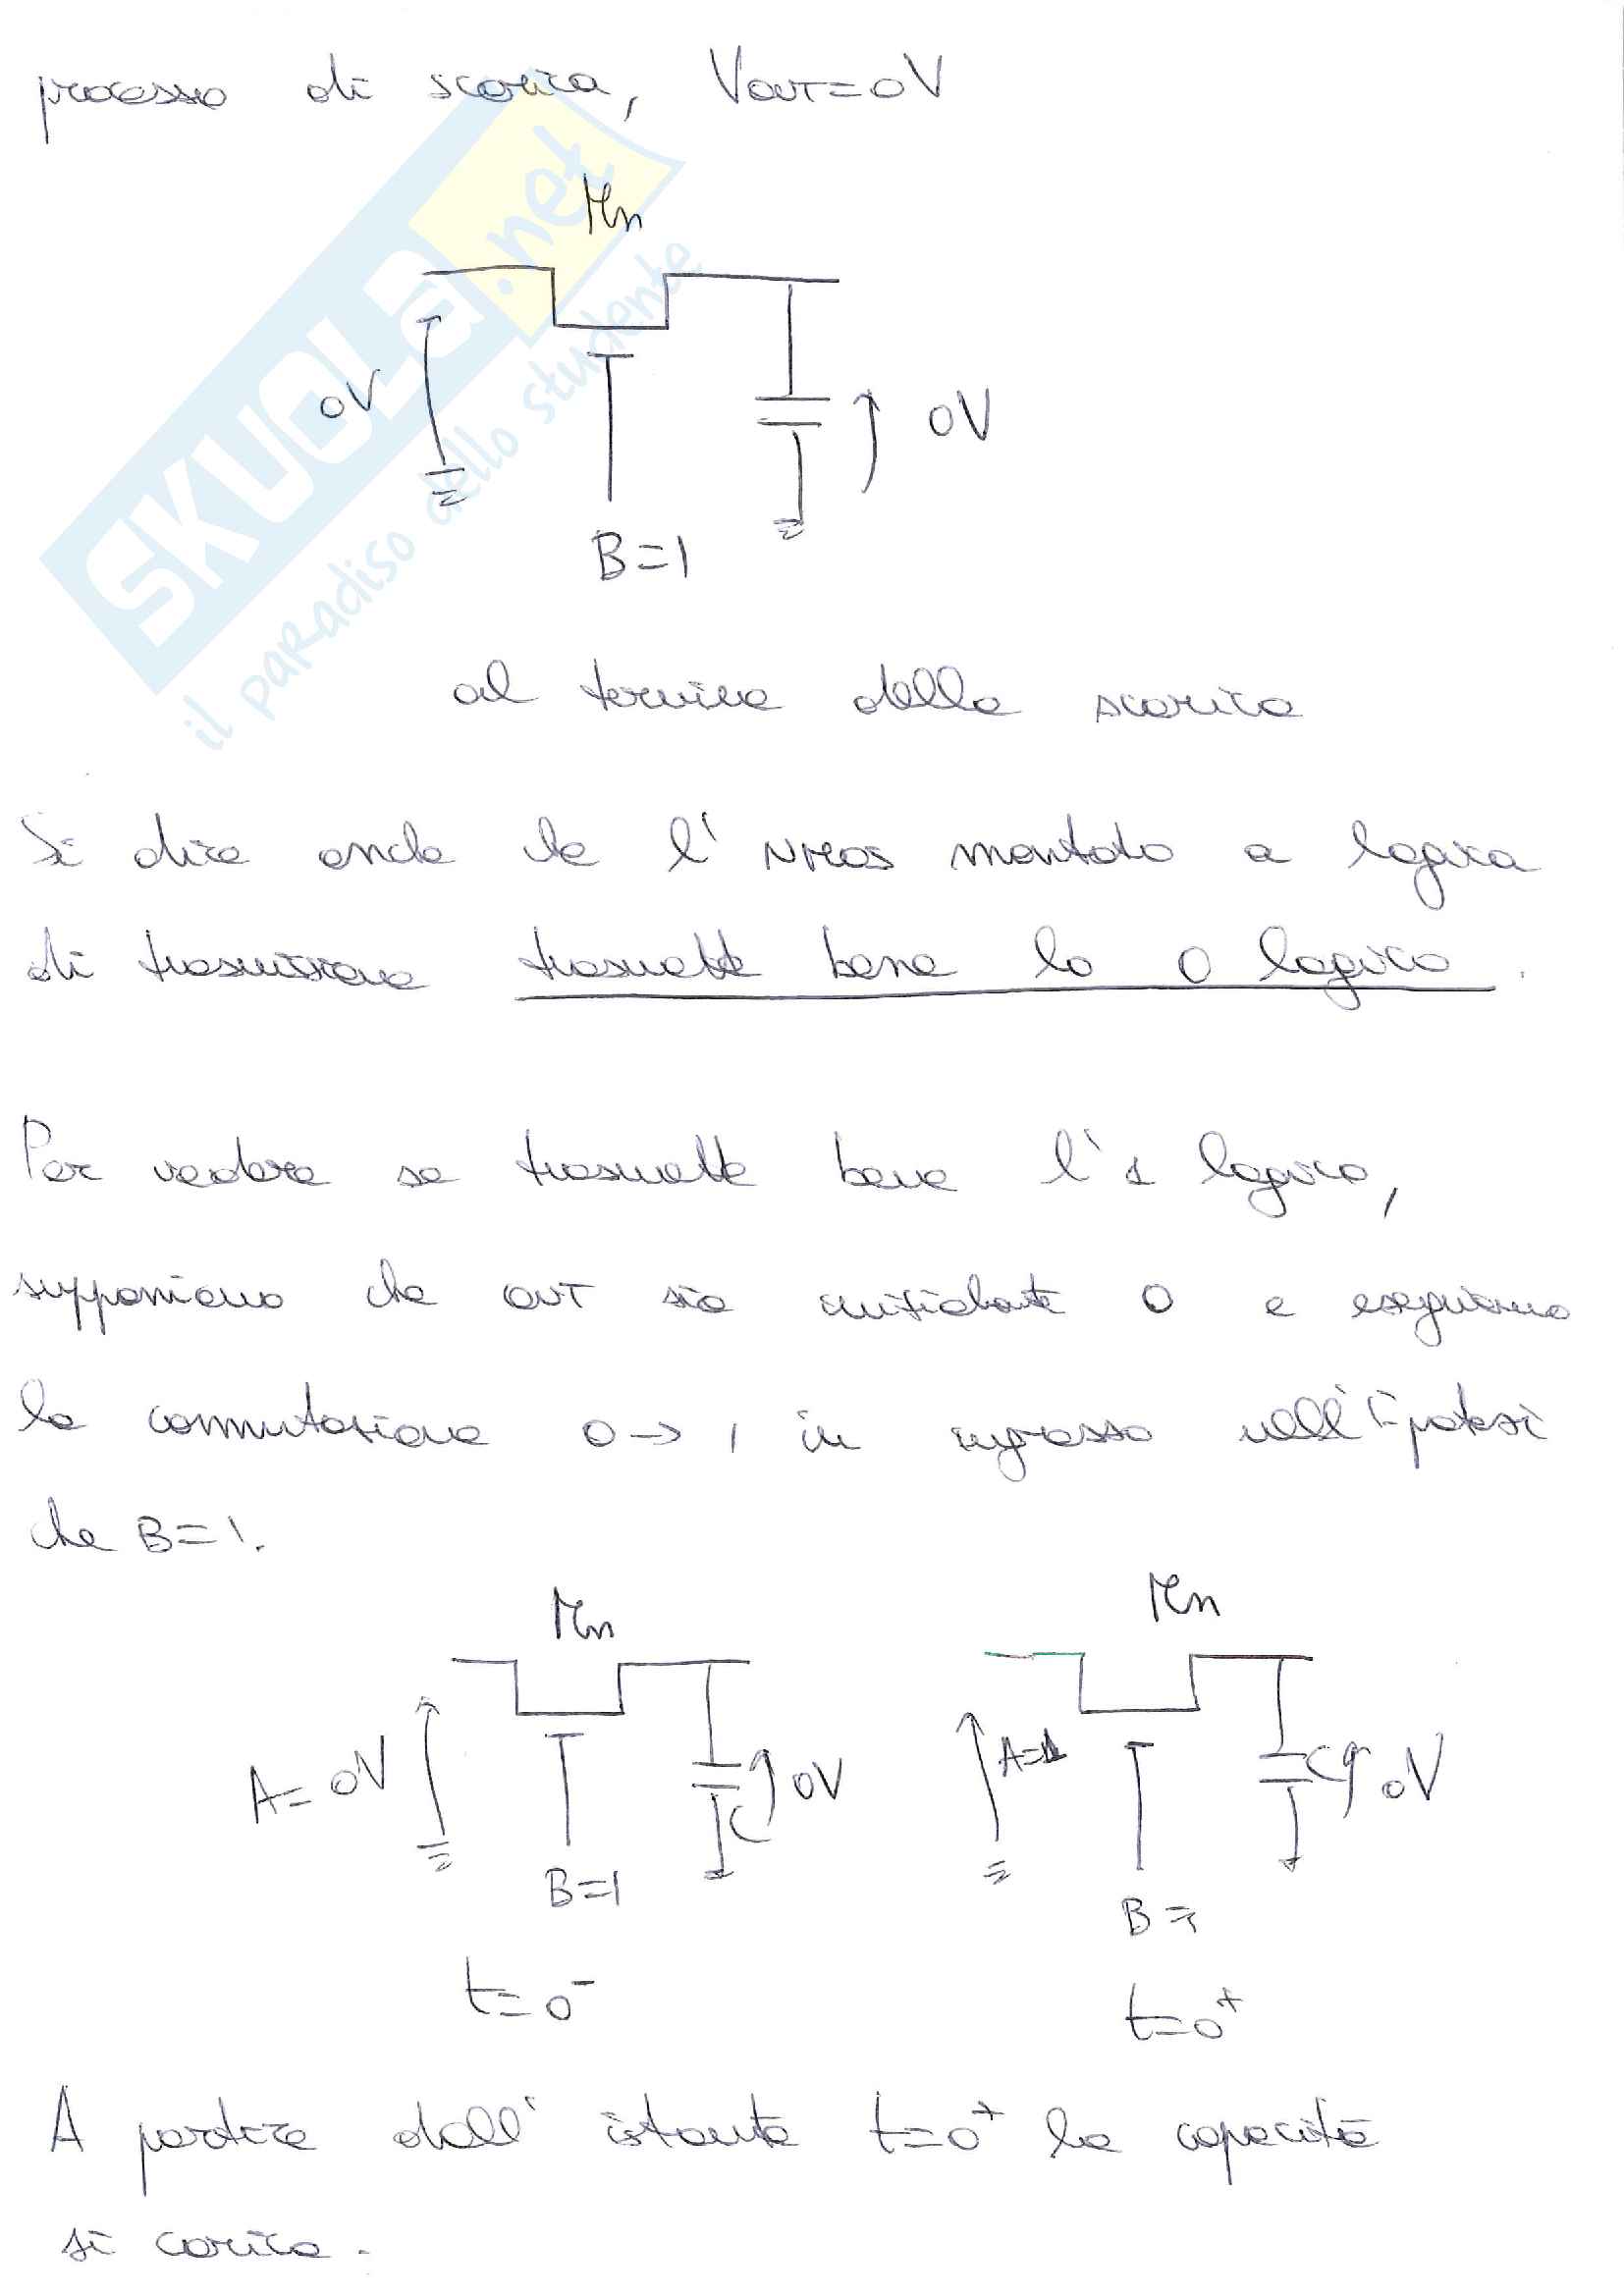 processo di scarica, VOUT=0V
SKUOLA.net
il paradiso dello studente
Mn
0V
0V
B=1
al termine della scarica
Si dice anche che l' NMOS montato a logica
di trasmissione trasmette bene lo 0 logico.
Per vedere se trasmette bene l'1 logico,
supponiamo che OUT sia inizialmente 0 e eseguiamo
la commutazione 0→1 in ingresso nell'ipotesi
che B=1.
Mn
Mn
A=0V
C
0V
A=1
C
0V
B=1
B=1
t=0⁻
t=0⁺
A partire dall' istante t=0⁺ la capacità
si carica.